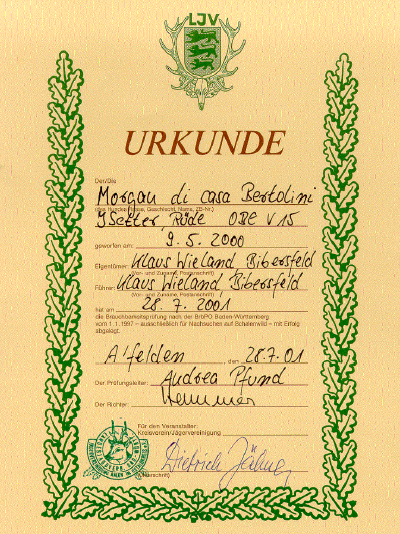 LJV
URKUNDE
Der/Die
Morgan di casa Bertolini
(des Hundes Rasse, Geschlecht, Name, ZB-Nr.)
ISetter, Rüde OBE V 15
geworfen am: 9.5.2000
Eigentümer: Klaus Wieland, Bibersfeld
(Vor- und Zuname, Postanschrift)
Führer: Klaus Wieland, Bibersfeld
(Vor- und Zuname, Postanschrift)
hat am 28.7.2001
die Brauchbarkeitsprüfung nach der BrPO Baden-Württemberg
vom 1.1.1997 – ausschließlich für Nachsuchen auf Schalenwild – mit Erfolg
abgelegt.
A'felden, den 28.7.01
Der Prüfungsleiter: Andrea Pfund
Der Richter:
Für den Veranstalter:
Kreisverein/Jägervereinigung
Dietrich